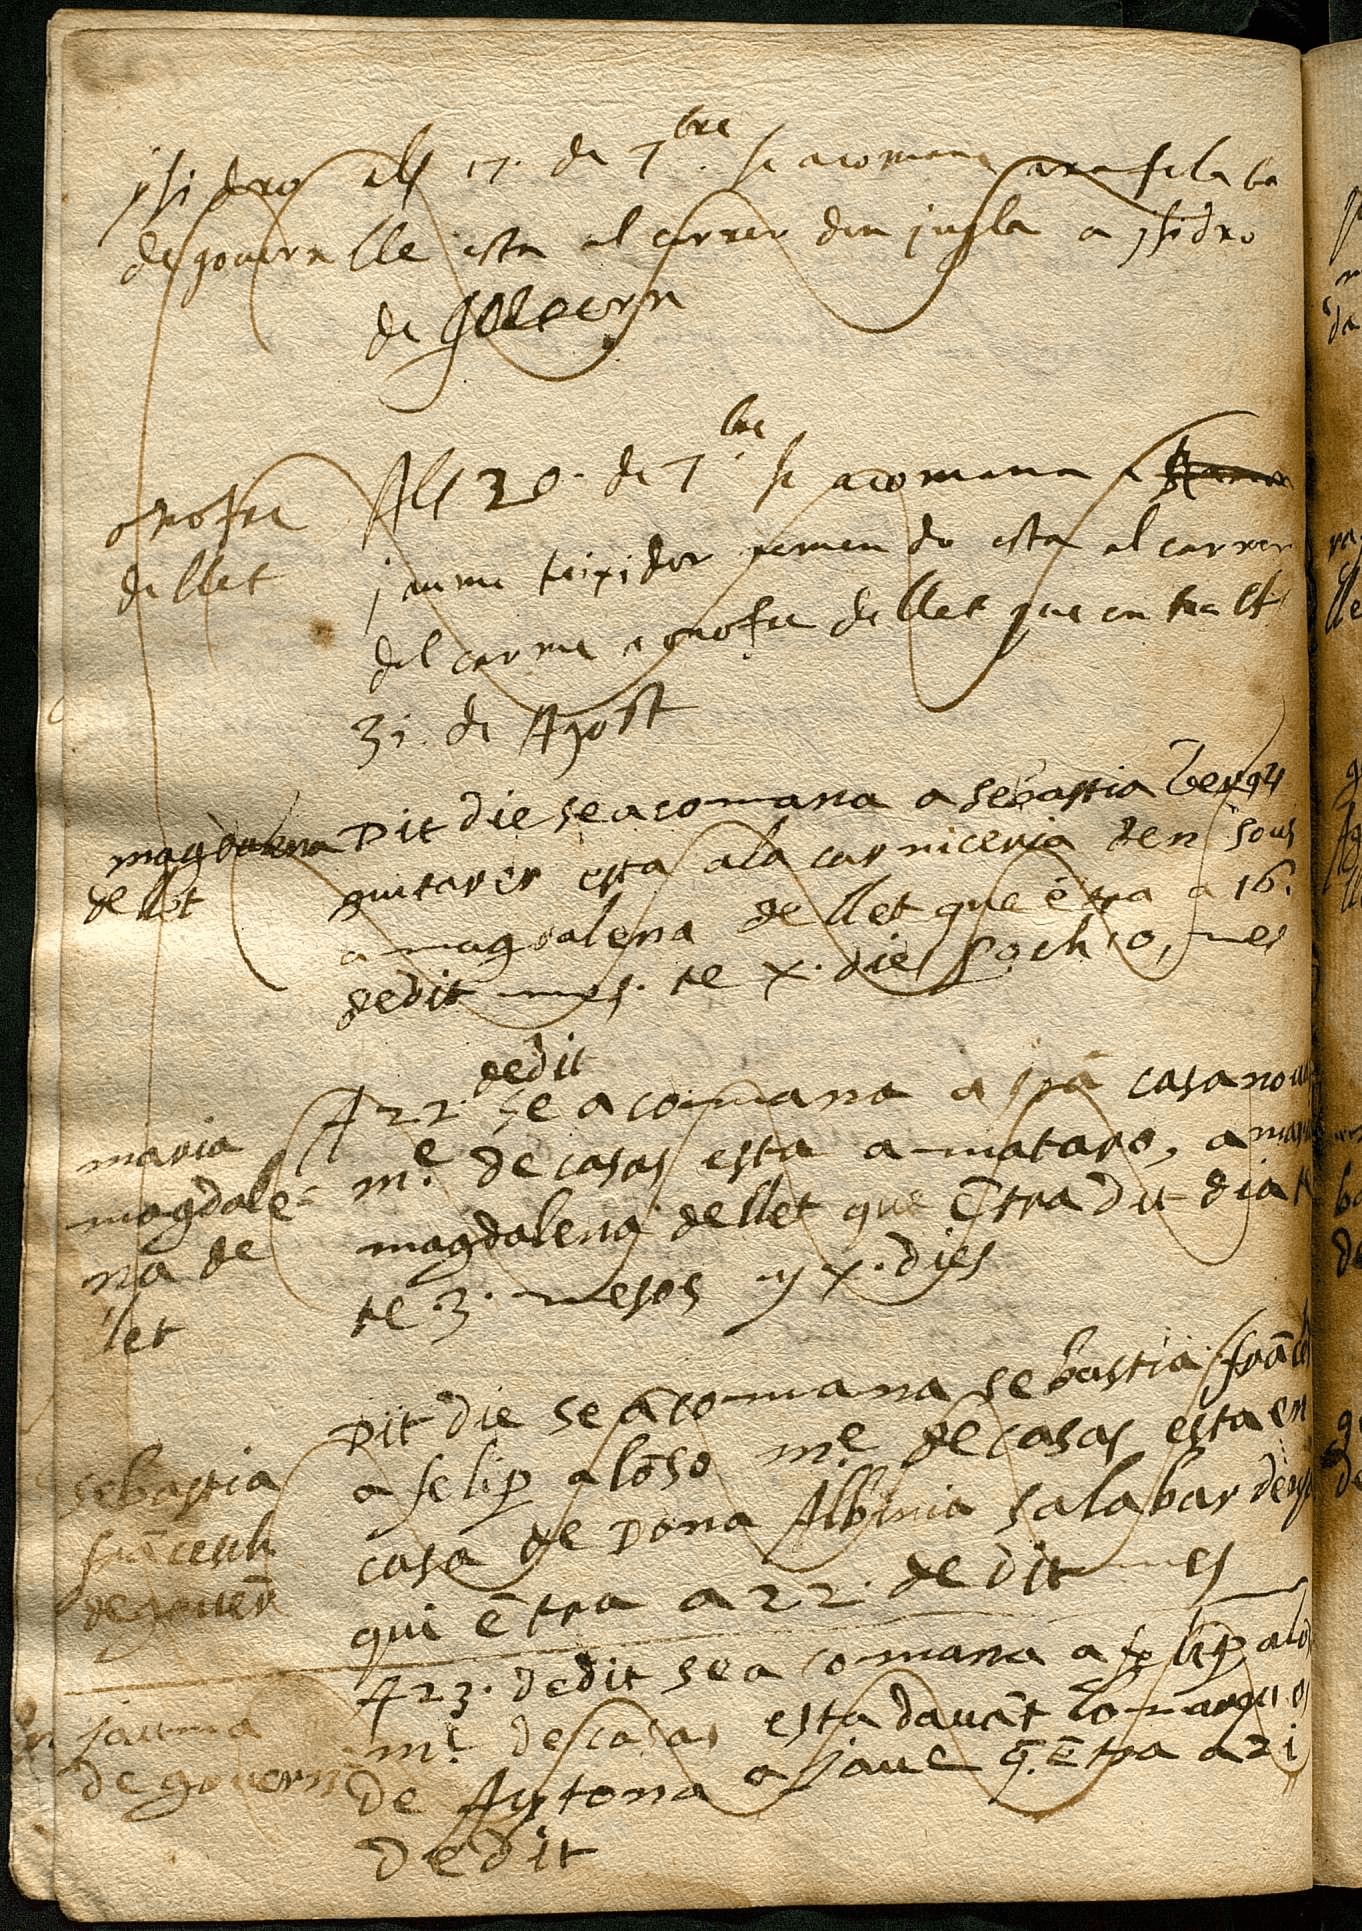 ysidro
de govern
als 17. de 7bre se acomana
lle esta al carrer den jupla a ysidro
de Govern
onofre
de llet
Als 20. de 7bre se acomana a
jaume teixidor esta al carrer
del carme a onofre de llet que entra als
31. de Agost
magdalena
de llet
Dit die se acomana a sebastia
guitarer esta a la carniceria den sous
a magdalena de llet que ētra a 16.
de dit mes. te x. dies
maria
magdale=
na de
llet
A 22. dedit se acomana a Joā casanova
m.e de casas esta a mataro, a maria
magdalena de llet que ētra dit dia
te 3. mesos y x. dies
sebastia
frācesch
de goverñ
Dit die se acomana sebastia frācesch
a felip alōso m.e de casas esta en
casa de Dona Albinia salabardenya
qui ētra a 22. de dit mes
jauma
de govern
A 23. dedit se a comana a felip alōso
m.e de casas esta davāt lo marques
de Aytona a jaume q. ētra a 21
dedit